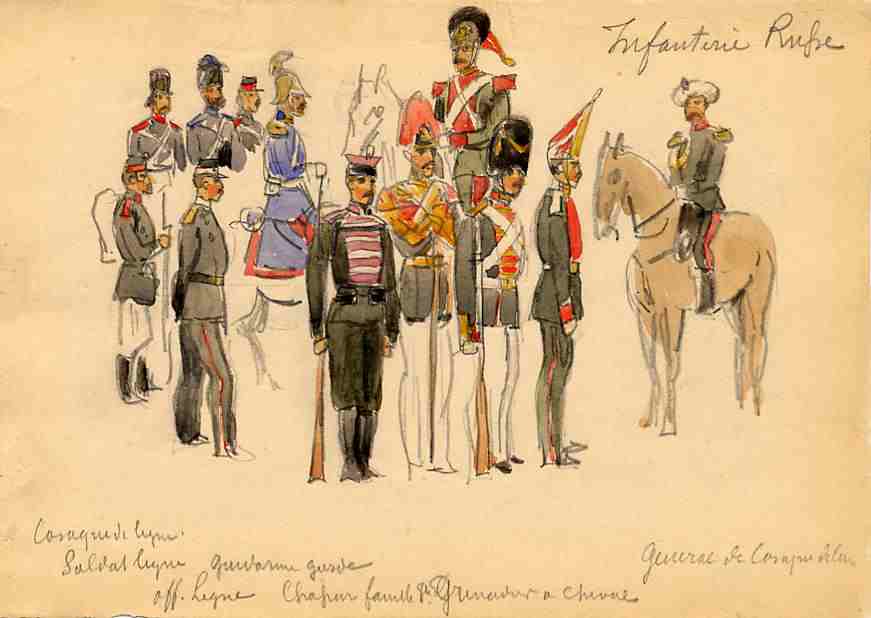 Infanterie Russe
Cosaque de ligne.
Soldat ligne gendarme garde
off. Ligne famille Grenadier a cheval
General de Cosaque de